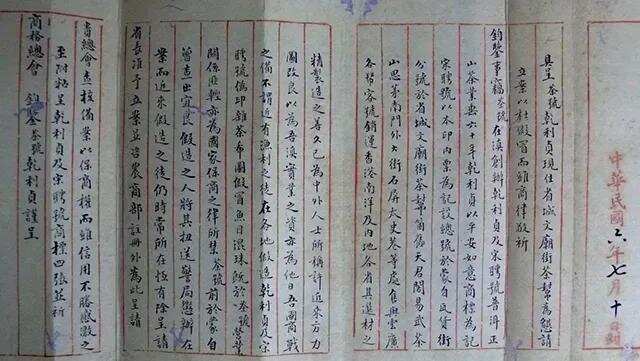 中華民國六年七月十日
具呈茶號乾利貞現住省城文廟街茶幫為懇請
立案以杜假冒而維商律敬祈
鈞鑒事竊茶號在滇創辦乾利貞及宋聘號普洱正
山茶業垂六十年乾利貞以平安如意商標為記
宋聘號以本印內票為記設總號於蒙自及貨街
分號於省城文廟街茶幫爾舊天君閣易武茶
山思茅南門外大街石屏太史巷等處售與雲廣
各幫客號銷運香港南洋及內地各省其選材之
精製造之善久已為中外人士所稱許近來方力
圖改良以為吾滇實業之資亦為他日吾國商戰
之備不謂近有漁利之徒在各地偽造乾利貞及宋
聘號偽印雜茶布圖假冒魚目混珠既於茶號營業
關係匪輕亦為國家保商之律所禁茶號前於蒙自
曾查出宜良偽造之人將其扭送警局懲辦在
案而近來偽造之徒仍時常所在恆有除呈請
省長准予立案並咨農商部註冊外為此呈請
貴總會查核備案以保商標而維信用不勝感激之
至附粘呈乾利貞及宋聘號商標四張並祈
商務總會 鈞鑒 茶號乾利貞謹呈